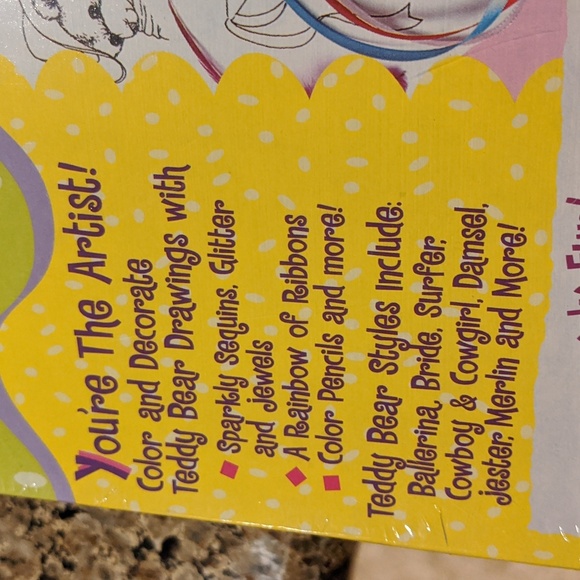 You're The Artist!
Color and Decorate
Teddy Bear Drawings with
Sparkly Sequins, Glitter
and Jewels
A Rainbow of Ribbons
Color Pencils and more!
Teddy Bear Styles Include:
Ballerina, Bride, Surfer,
Cowboy & Cowgirl, Damsel,
Jester, Merlin and More!